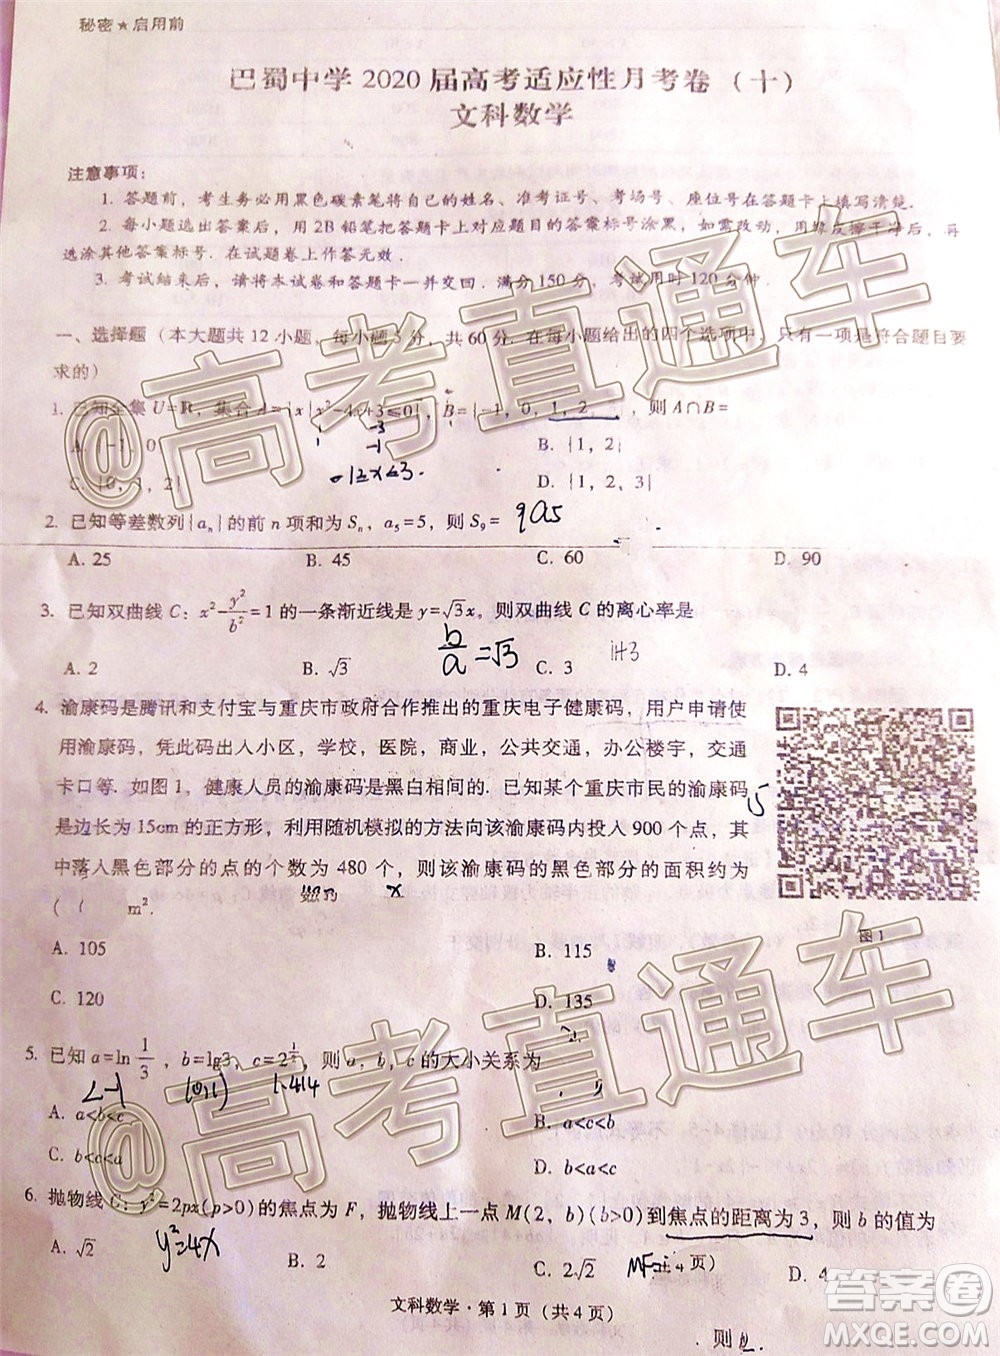 秘密★启用前
巴蜀中学 2020 届高考适应性月考卷（十）
文科数学
注意事项：
1. 答题前，考生务必用黑色碳素笔将自己的姓名、准考证号、考场号、座位号在答题卡上填写清楚.
2. 每小题选出答案后，用 2B 铅笔把答题卡上对应题目的答案标号涂黑. 如需改动，用橡皮擦干净后，再
选涂其他答案标号. 在试题卷上作答无效.
3. 考试结束后，请将本试卷和答题卡一并交回. 满分 150 分，考试用时 120 分钟.
一、选择题（本大题共 12 小题，每小题 5 分，共 60 分. 在每小题给出的四个选项中，只有一项是符合题目要
求的）
1. 已知全集 U=R，集合 A={x|x²-4x+3≤0}，B={-1，0，1，2}，则 A∩B=
1 -3
-1
A. {-1，0} B. {1，2}
1≤x≤3.
C. {0，1，2} D. {1，2，3}
2. 已知等差数列{aₙ}的前 n 项和为 Sₙ，a₅=5，则 S₉= 9a5
A. 25 B. 45 C. 60 D. 90
3. 已知双曲线 C：x²-y²/b²=1 的一条渐近线是 y=√3x，则双曲线 C 的离心率是
b/a=√3 1+3
A. 2 B. √3 C. 3 D. 4
4. 渝康码是腾讯和支付宝与重庆市政府合作推出的重庆电子健康码，用户申请使
用渝康码，凭此码出入小区，学校，医院，商业，公共交通，办公楼宇，交通
卡口等. 如图 1，健康人员的渝康码是黑白相间的. 已知某个重庆市民的渝康码
15
是边长为 15cm 的正方形，利用随机模拟的方法向该渝康码内投入 900 个点，其
中落入黑色部分的点的个数为 480 个，则该渝康码的黑色部分的面积约为
x
( m².
图 1
A. 105 B. 115
C. 120 D. 135
5. 已知 a=ln 1/3，b=lg3，c=2^(1/2)，则 a，b，c 的大小关系为
<-1 (0,1) 1.414
A. a<b<c B. a<c<b
C. b<c<a D. b<a<c
6. 抛物线 C：y²=2px(p>0)的焦点为 F，抛物线上一点 M(2，b)(b>0)到焦点的距离为 3，则 b 的值为
y²=4x
A. √2 B. 2 C. 2√2 D. 4
4 页）
文科数学·第 1 页（共 4 页）
则
@高考直通车
@高考直通车
答案圈
MXQE.COM